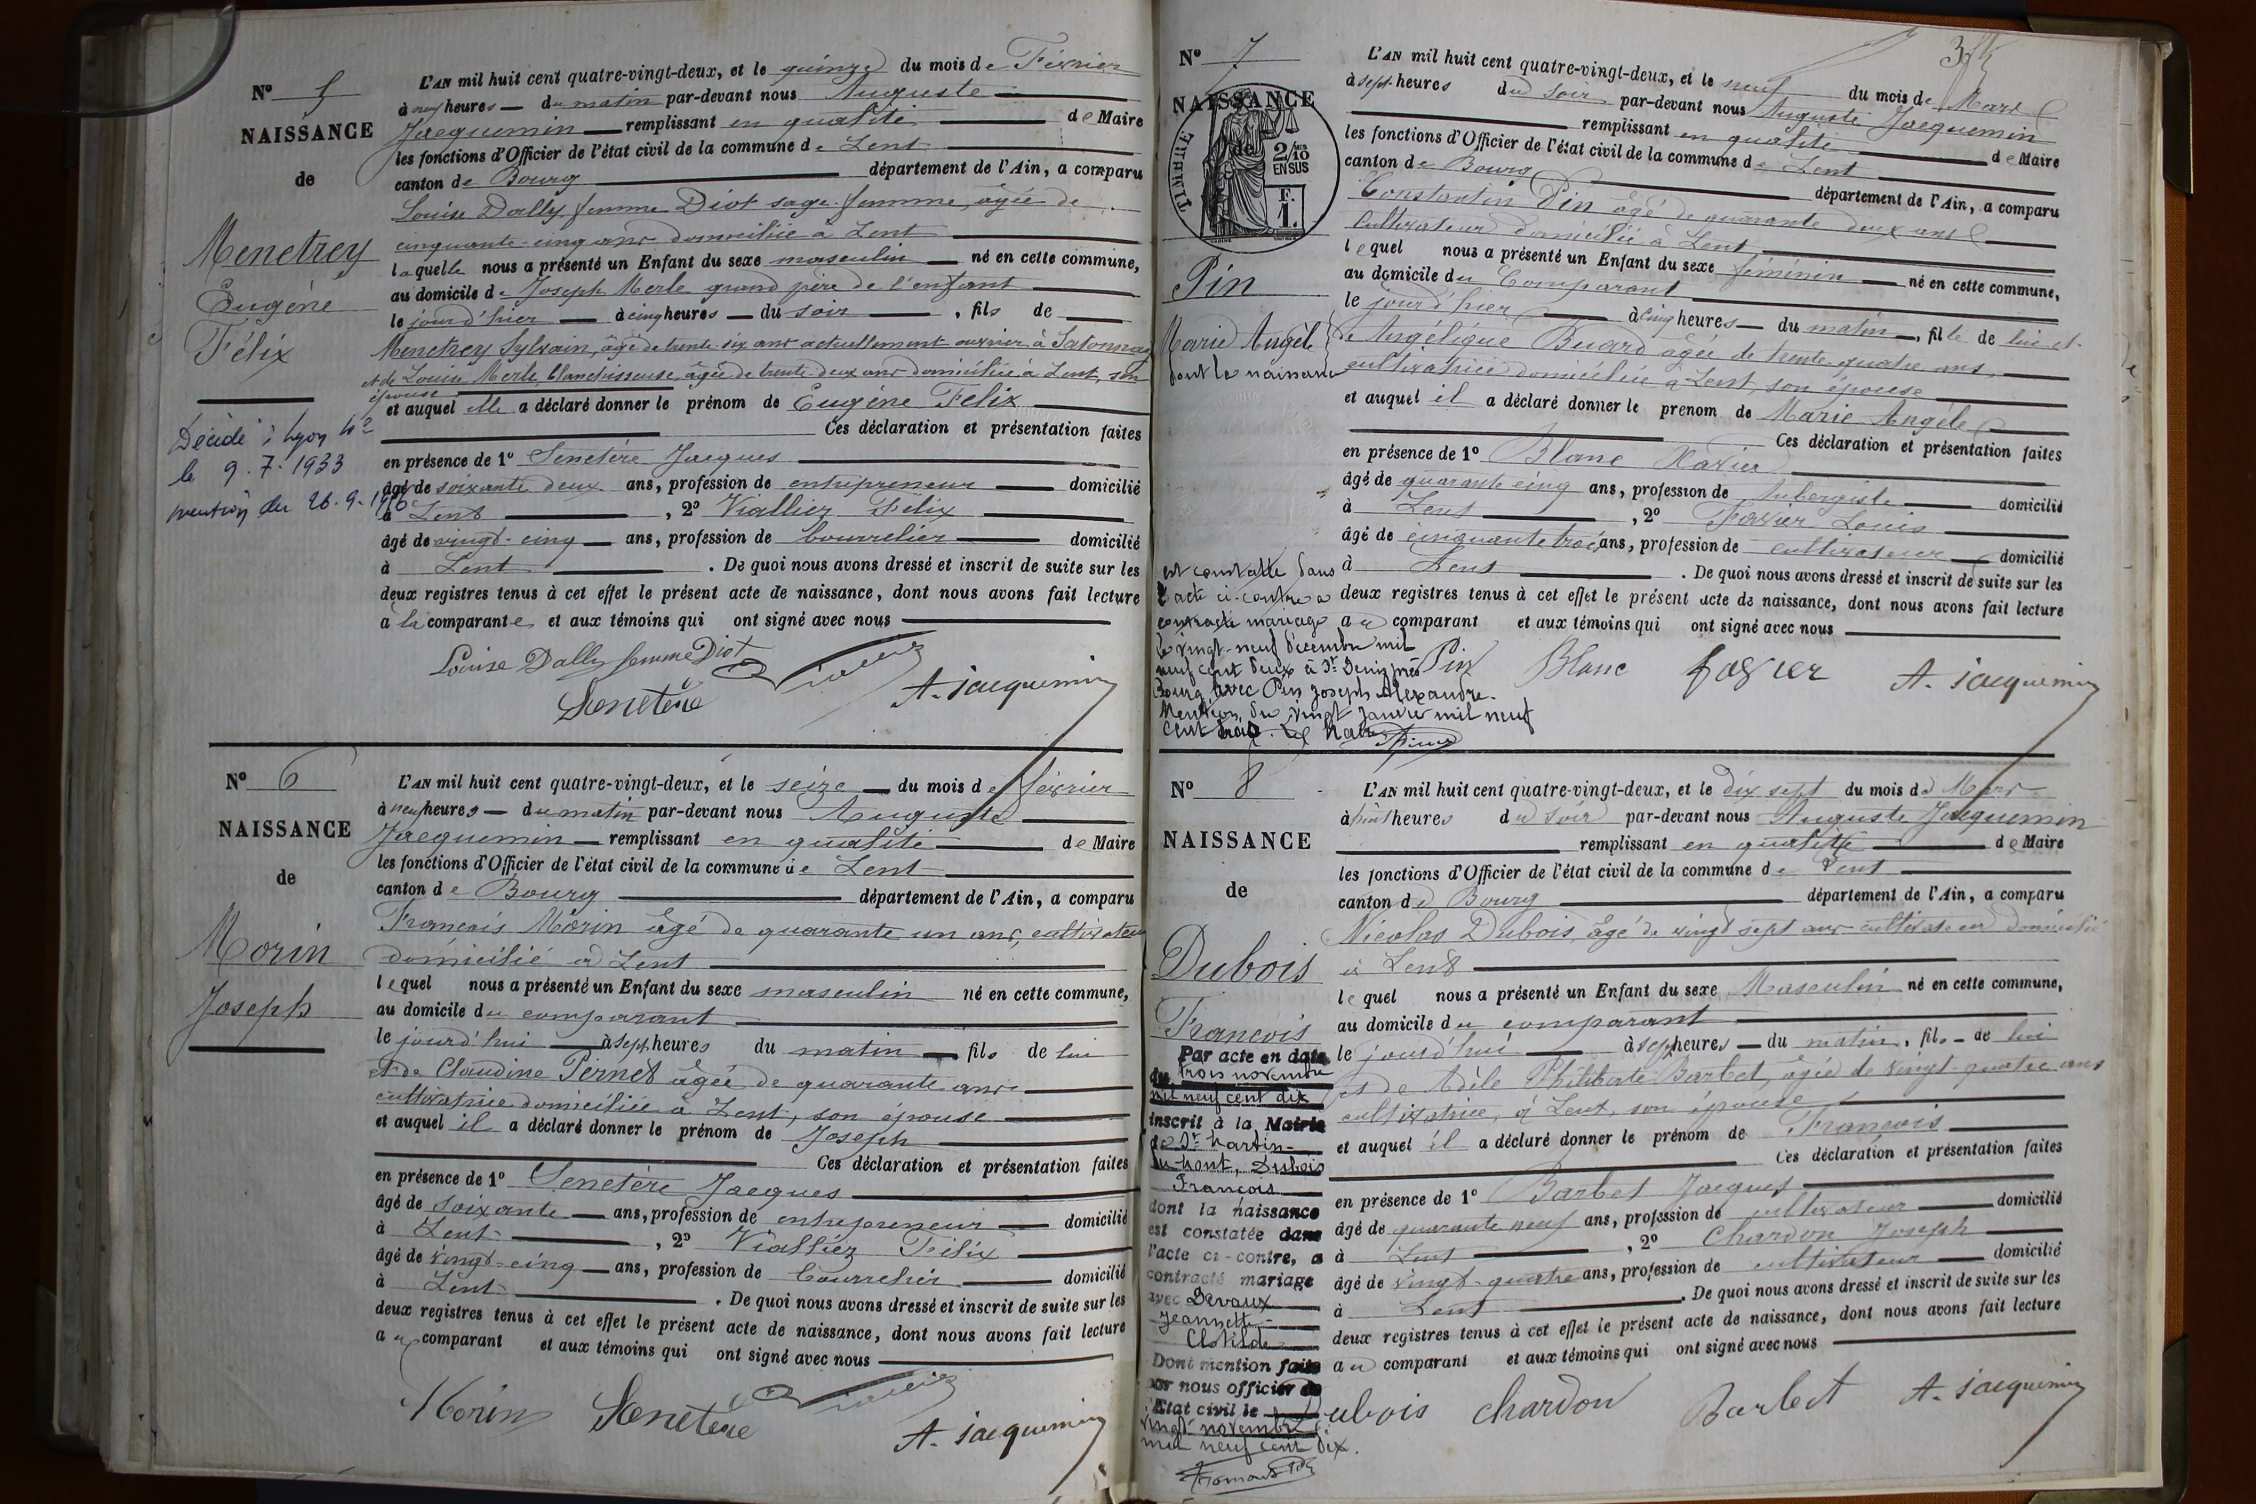 N° 5
NAISSANCE
de
Menetrey
Eugène
Félix
Décédé à Lyon 4e
le 9.7.1933
mention du 26.9.1976
L'AN mil huit cent quatre-vingt-deux, et le quinze du mois de Février
à neuf heures — du matin par-devant nous Auguste
Jacquemin — remplissant en qualité de Maire
les fonctions d'Officier de l'état civil de la commune de Lent
canton de Bourg département de l'Ain, a comparu
Louise Dally femme Diot sage-femme, âgée de
cinquante-cinq ans domiciliée à Lent
laquelle nous a présenté un Enfant du sexe masculin — né en cette commune,
au domicile de Joseph Merle grand père de l'enfant
le jour d'hier — à cinq heures — du soir —, fils de
Menetrey Sylvain, âgé de trente six ans actuellement ouvrier à Satonnay
et de Louise Merle, blanchisseuse, âgée de trente-deux ans domiciliée à Lent, son
épouse
et auquel elle a déclaré donner le prénom de Eugène Félix
Ces déclaration et présentation faites
en présence de 1° Senetère Jacques
âgé de soixante deux ans, profession de entrepreneur — domicilié
à Lent, 2° Viallier Félix
âgé de vingt-cinq — ans, profession de bourrelier — domicilié
à Lent. De quoi nous avons dressé et inscrit de suite sur les
deux registres tenus à cet effet le présent acte de naissance, dont nous avons fait lecture
à la comparante et aux témoins qui ont signé avec nous
Louise Dally femme Diot
Senetère
A. Jacquemin
N° 6
NAISSANCE
de
Morin
Joseph
L'AN mil huit cent quatre-vingt-deux, et le seize — du mois de février
à neuf heures — du matin par-devant nous Auguste
Jacquemin — remplissant en qualité de Maire
les fonctions d'Officier de l'état civil de la commune de Lent
canton de Bourg département de l'Ain, a comparu
François Morin âgé de quarante un ans, cultivateur
domicilié à Lent
lequel nous a présenté un Enfant du sexe masculin né en cette commune,
au domicile du comparant
le jourd'hui — à sept heures du matin — fils de lui
et de Claudine Pernet âgée de quarante ans
cultivatrice domiciliée à Lent, son épouse
et auquel il a déclaré donner le prénom de Joseph
Ces déclaration et présentation faites
en présence de 1° Senetère Jacques
âgé de soixante — ans, profession de entrepreneur — domicilié
à Lent, 2° Viallier Félix
âgé de vingt-cinq — ans, profession de bourrelier domicilié
à Lent. De quoi nous avons dressé et inscrit de suite sur les
deux registres tenus à cet effet le présent acte de naissance, dont nous avons fait lecture
au comparant et aux témoins qui ont signé avec nous
Morin Senetère
A. Jacquemin
N° 7
NAISSANCE
de
TIMBRE
2/10
EN SUS
F.
1.
Pin
Marie Angèle
dont la naissance
est constatée dans
l'acte ci-contre a
contracté mariage
le vingt-neuf décembre mil
neuf cent deux à St Denis près
Bourg avec Pin Joseph Alexandre.
Mention du vingt janvier mil neuf
cent trois. Le Maire
L'AN mil huit cent quatre-vingt-deux, et le neuf du mois de Mars
à sept heures du soir par-devant nous Auguste Jacquemin
remplissant en qualité de Maire
les fonctions d'Officier de l'état civil de la commune de Lent
canton de Bourg département de l'Ain, a comparu
Constantin Pin âgé de quarante deux ans
cultivateur domicilié à Lent
lequel nous a présenté un Enfant du sexe féminin — né en cette commune,
au domicile du Comparant
le jour d'hier — à cinq heures — du matin —, fille de lui et
de Angélique Buard âgée de trente-quatre ans
cultivatrice domiciliée à Lent, son épouse
et auquel il a déclaré donner le prénom de Marie Angèle
Ces déclaration et présentation faites
en présence de 1° Blanc Xavier
âgé de quarante cinq ans, profession de Aubergiste domicilié
à Lent, 2° Favier Louis
âgé de cinquante trois ans, profession de cultivateur domicilié
à Lent. De quoi nous avons dressé et inscrit de suite sur les
deux registres tenus à cet effet le présent acte de naissance, dont nous avons fait lecture
au comparant et aux témoins qui ont signé avec nous
Pin Blanc favier A. Jacquemin
N° 8
NAISSANCE
de
Dubois
François
Par acte en date
du trois novembre
mil neuf cent dix
inscrit à la Mairie
de St Martin-
du-Mont, Dubois
François
dont la naissance
est constatée dans
l'acte ci-contre, a
contracté mariage
avec Devaux
Jeannette
Clotilde
Dont mention faite
par nous officier de
l'Etat civil le
vingt novembre
mil neuf cent dix.
L'AN mil huit cent quatre-vingt-deux, et le dix sept du mois de Mars
à huit heures du soir par-devant nous Auguste Jacquemin
remplissant en qualité de Maire
les fonctions d'Officier de l'état civil de la commune de Lent
canton de Bourg département de l'Ain, a comparu
Nicolas Dubois, âgé de vingt sept ans cultivateur domicilié
à Lent
lequel nous a présenté un Enfant du sexe Masculin né en cette commune,
au domicile du comparant
le jourd'hui à sept heures — du matin, fils — de lui
et de Adèle Philiberte Barbet, âgée de vingt-quatre ans
cultivatrice, à Lent, son épouse
et auquel il a déclaré donner le prénom de François
Ces déclaration et présentation faites
en présence de 1° Barbet Jacques
âgé de quarante neuf ans, profession de cultivateur domicilié
à Lent, 2° Chardon Joseph
âgé de vingt-quatre ans, profession de cultivateur domicilié
à Lent. De quoi nous avons dressé et inscrit de suite sur les
deux registres tenus à cet effet le présent acte de naissance, dont nous avons fait lecture
au comparant et aux témoins qui ont signé avec nous
Dubois chardon Barbet A. Jacquemin